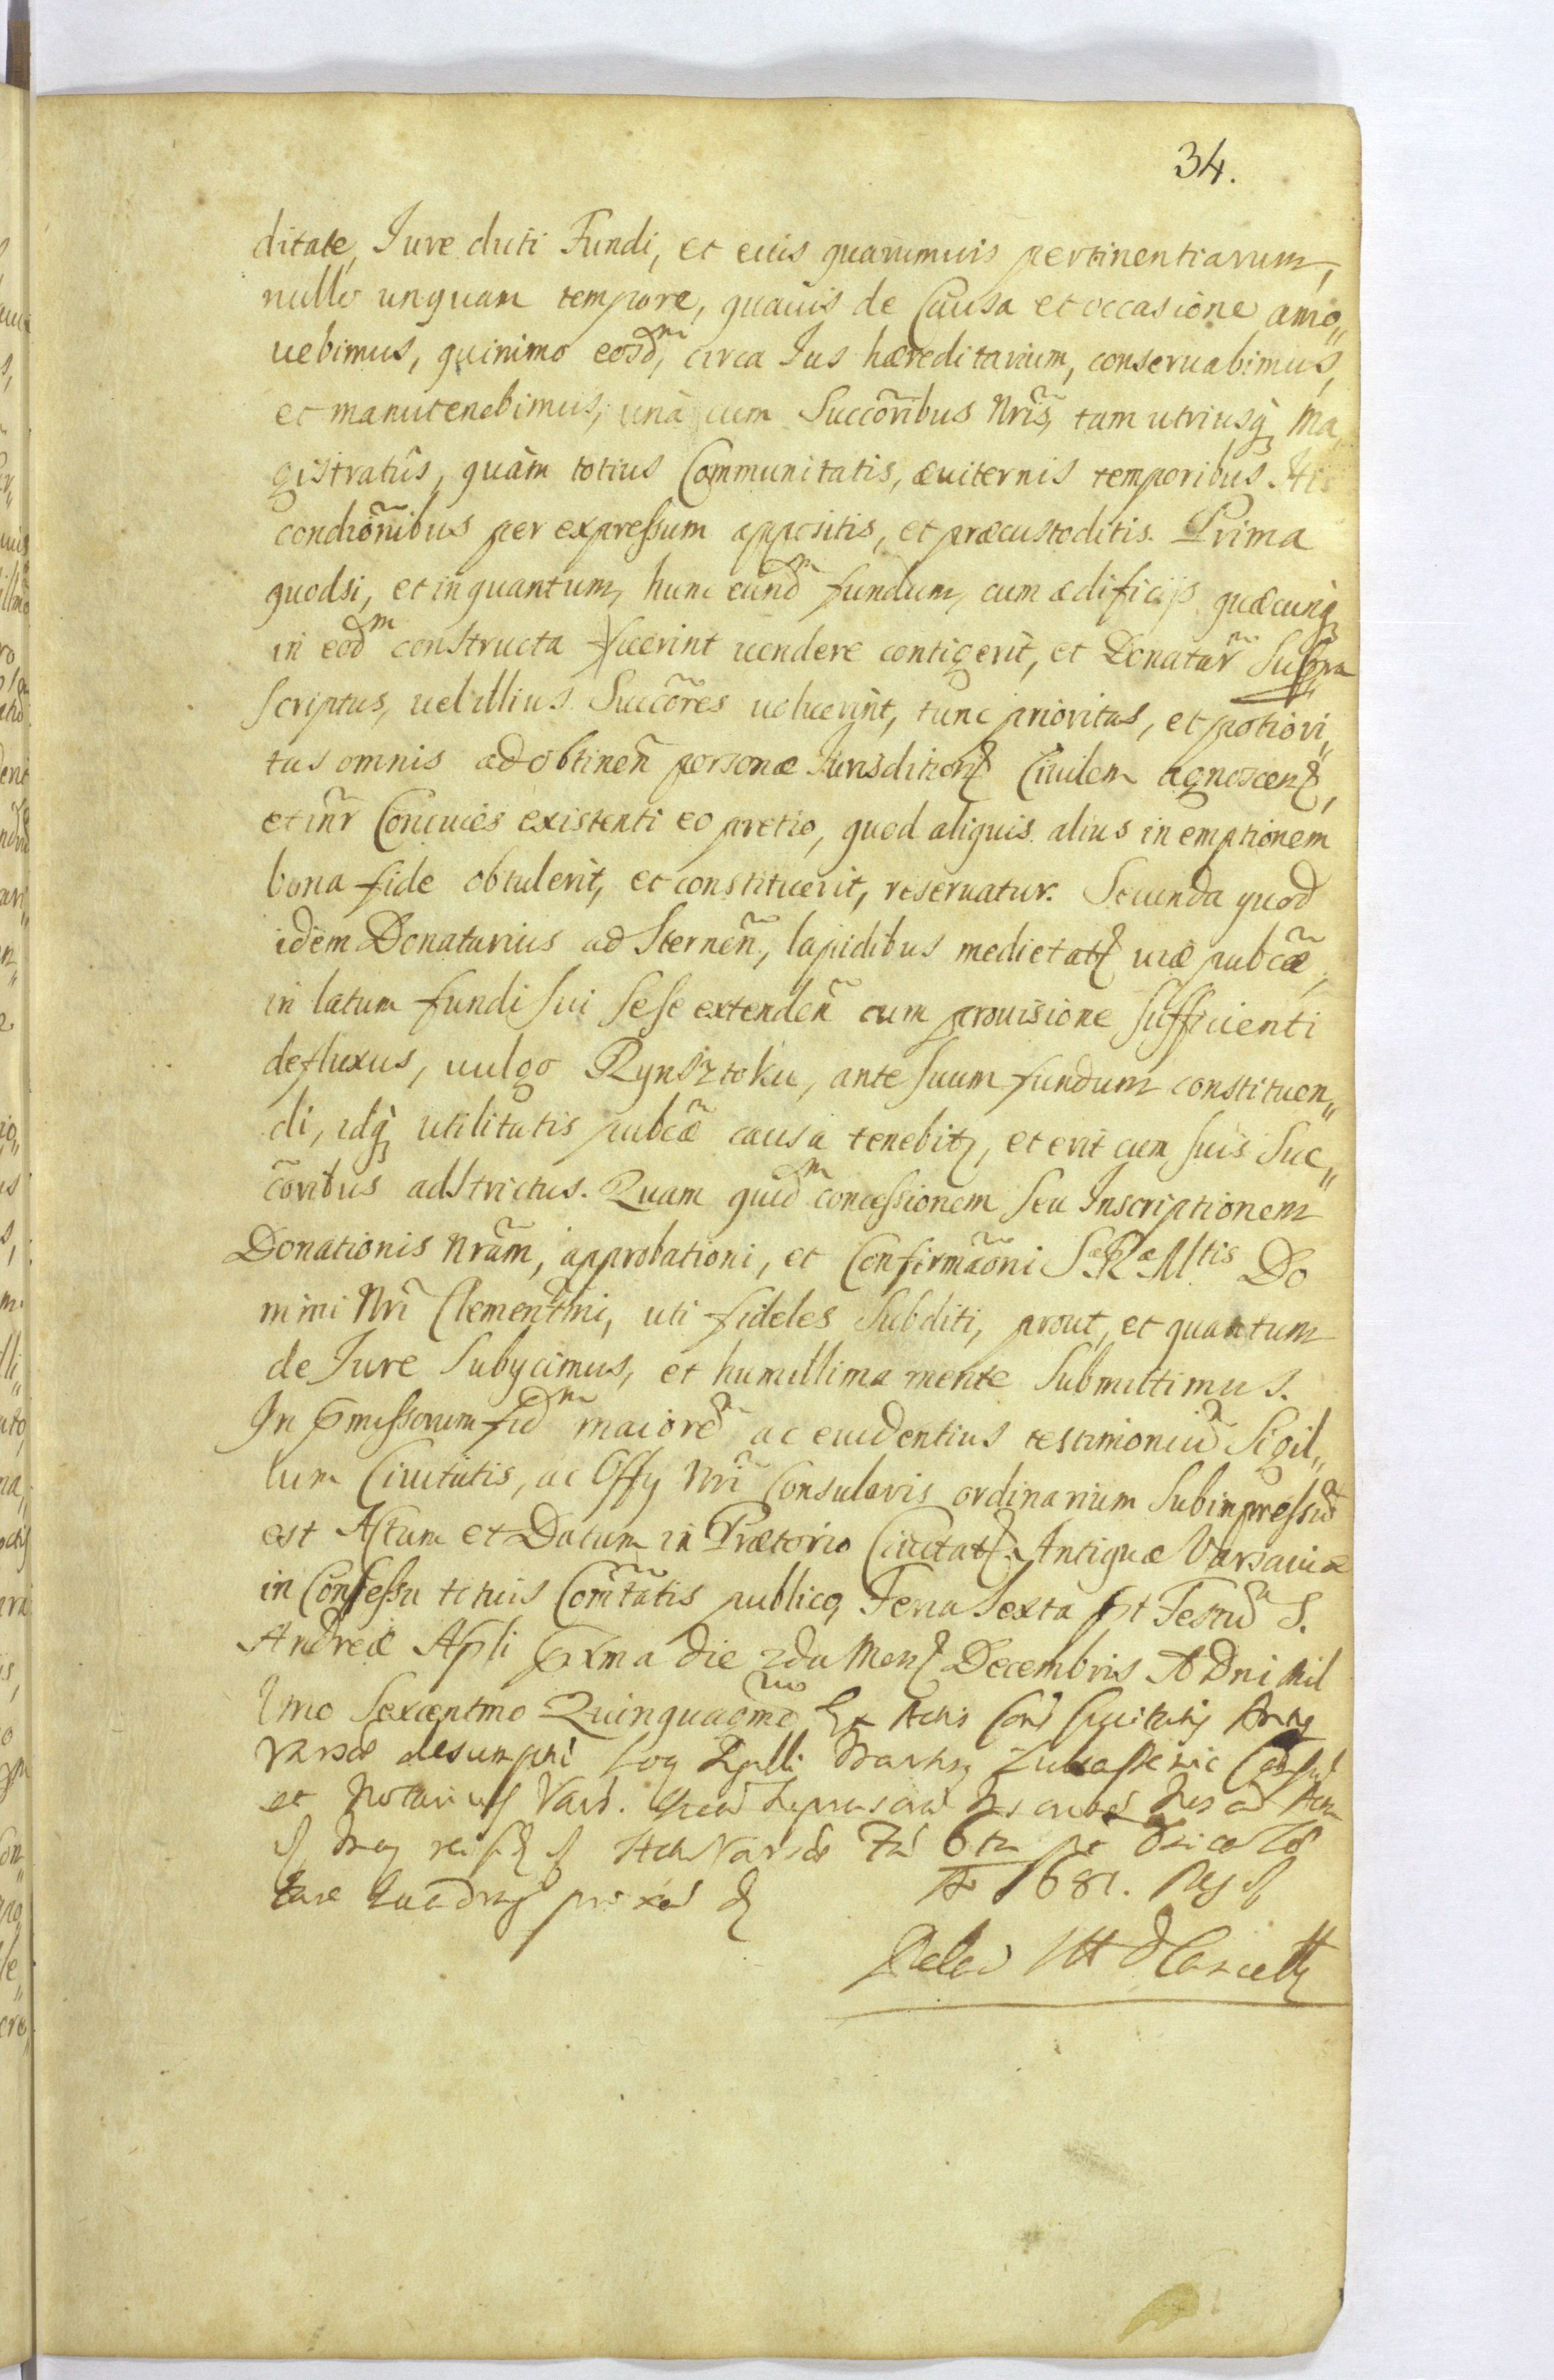 34.
ditate, Jure dicti Fundi, et eius quarumuis pertinentiarum,
nullo unquam tempore, quauis de Causa et occasione amo„
uebimus, quinimo eosdm, circa Jus hæreditarium, conseruabimus,
et manutenebimus, unà cum Succoribus Nris, tam utriusq Ma„
gistratûs, quàm totius Communitatis, æuiternis temporibus. His
condionibus per expressum appositis, et præcustoditis. Prima
quodsi, et inquantum, hunc eundm fundum, cum ædificijs quæcunq
in eodm constructa fuerint uendere contigerit, et Donatar Supra
scriptus, uel illius Succores uoluerint, tunc prioritas, et potiori„
tas omnis ad obtinen personæ Jurisdition Ciuilem agnoscen,
et inr Conciues existenti eo pretio, quod aliquis alius in emptionem
bona fide obtulerit, et constituerit, reseruatur. Secunda quod
idem Donatarius ad Sternen, lapidibus medietat uiæ pubcæ,
in latum fundi sui sese extenden cum prouisione sufficienti
defluxus, uulgo Rynsztoku, ante suum fundum constituen„
di, idq utilitatis pubcæ causa tenebit, et erit cum suis Suc„
coribus adstrictus. Quam quidm concessionem seu Inscriptionem
Donationis Nram, approbationi, et Confirmaoni S R Mtis Do
mini Nri Clementmi, uti fideles Subditi, prout, et quantum
de Jure Subijcimus, et humillima mente Submittimus.
In pmissorum fidm maiore ac euidentius testimoniu Sigil„
lum Ciuitatis, ac Offij Nri Consularis ordinarium Subimpressu
est Actum et Datum in Prætorio Ciuitat Antiquæ Varsauiæ
in Consessu totius Comtatis publico, Feria Sexta pt Festu S.
Andreæ Apli pxma die 2da Mens Decembris A Dni Mil
lmo Sexcentmo Quinquagmo Ex Actis Civitatis
desumpt
et Notarius Vars.
6ta
1681.